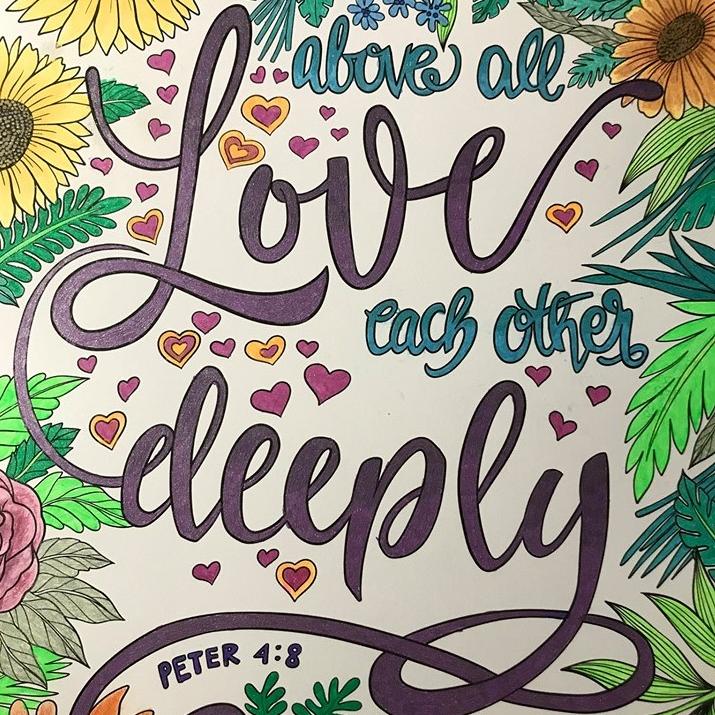 above all
Love
each other
deeply
PETER 4:8